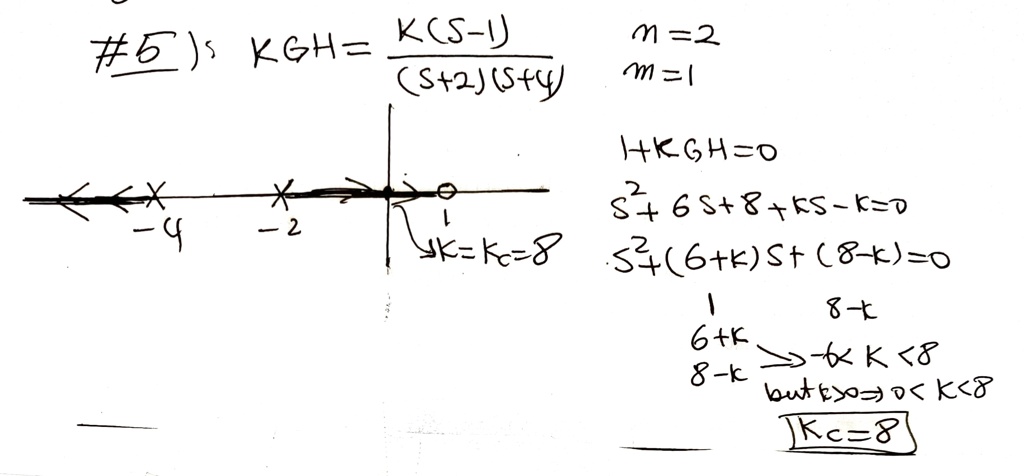 #5): KGH = K(S-1)
(S+2)(S+4)
n=2
m=1
-4
-2
1
K=Kc=8
1+KGH=0
S²+6S+8+KS-K=0
S²+(6+K)S+(8-K)=0
1 8-K
6+K
8-K
-6<K<8
but K>0⇒0<K<8
Kc=8